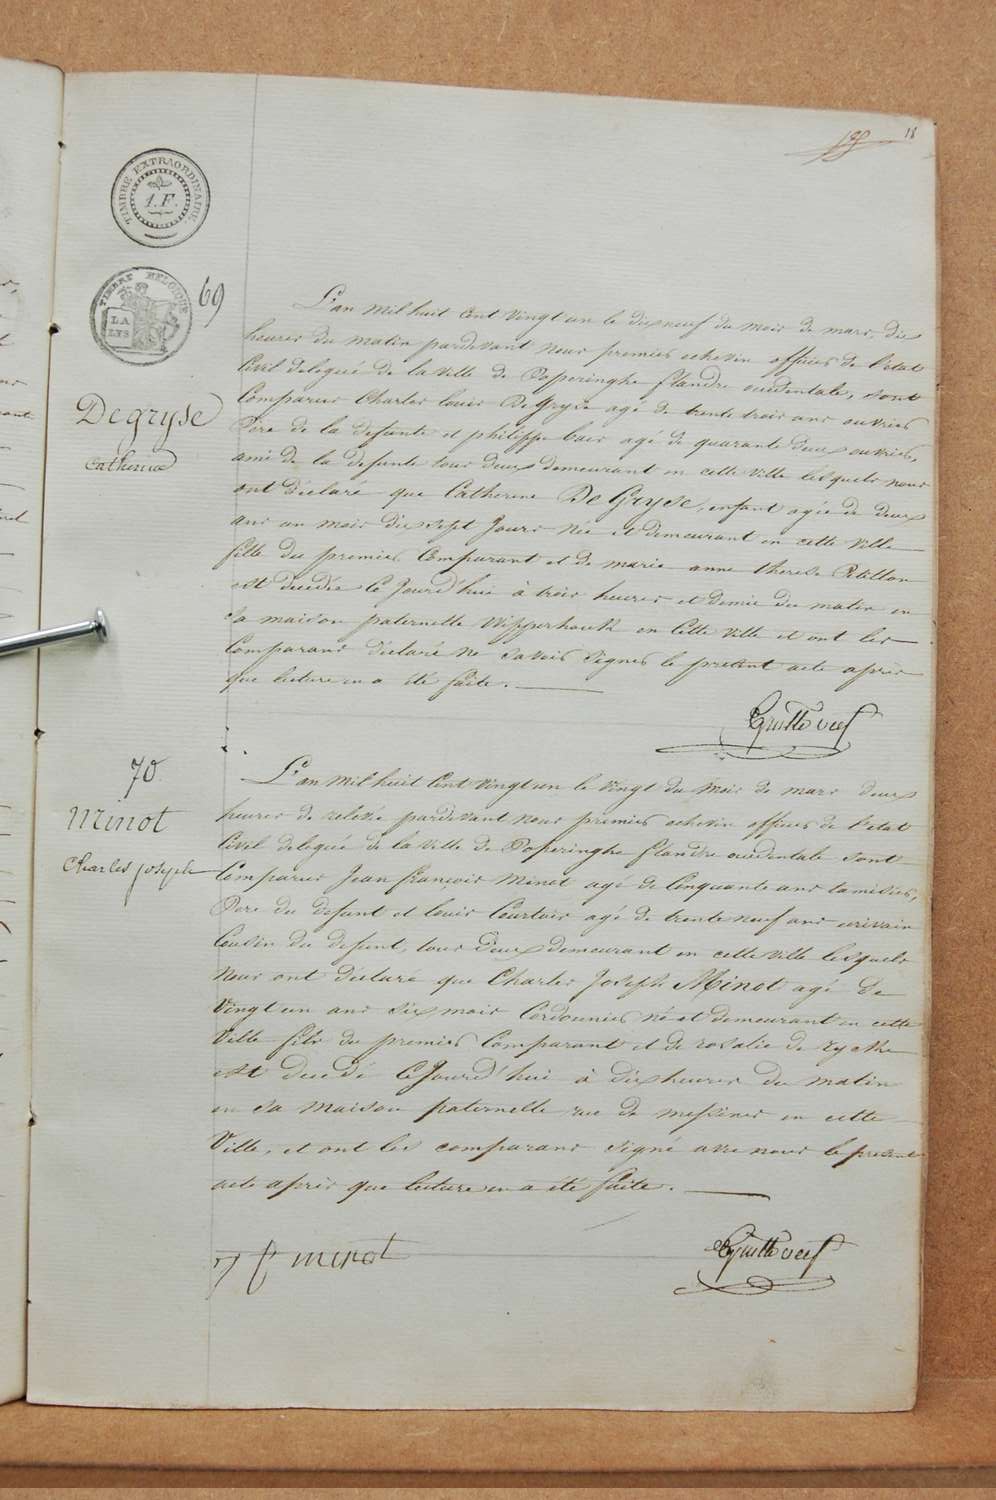 18
TIMBRE EXTRAORDINAIRE
1.F.
TIMBRE BELGIQUE
LA
LYS
69
Degryse
Catherine
L'an mil huit Cent vingt un le dix neuf du mois de mars, dix
heures du matin pardevant nous premier echevin officier de l'etat
Civil delegué de la ville de Poperinghe flandre occidentale, sont
Comparus Charles louis De Gryse agé de trente trois ans ouvrier
Père de la defunte et philippe bais agé de quarante deux ouvrier,
ami de la defunte tous deux demeurant en cette ville lesquels nous
ont déclaré que Catherine De Gryse, enfant agée de deux
ans un mois dix sept jours née et demeurant en cette ville
fille du premier Comparant et de marie anne therese Petillon
est decedée ce Jourd'hui à trois heures et demie du matin en
sa maison paternelle Wipperhoek en Cette ville et ont les
Comparans déclaré ne savoir signer le present acte après
que lecture en a été faite.
70
Minot
Charles joseph
L'an mil huit Cent vingt un le vingt du mois de mars deux
heures de relevée pardevant nous premier echevin officier de l'etat
Civil delegué de la ville de Poperinghe flandre occidentale sont
Comparus Jean françois Minot agé de Cinquante ans tamisier,
Père du defunt et louis Courtois agé de trente neuf ans ecrivain
Cousin du defunt, tous deux demeurant en cette ville lesquels
Nous ont déclaré que Charles Joseph Minot agé de
vingt un ans six mois Cordonnier né et demeurant en cette
Ville fils du premier Comparant et de rosalie de rycke
est decedé Ce Jourd'hui à dix heures du matin
en sa maison paternelle rue de messines en cette
Ville, et ont les comparans signé avec nous le present
acte après que lecture en a été faite.
j f minot